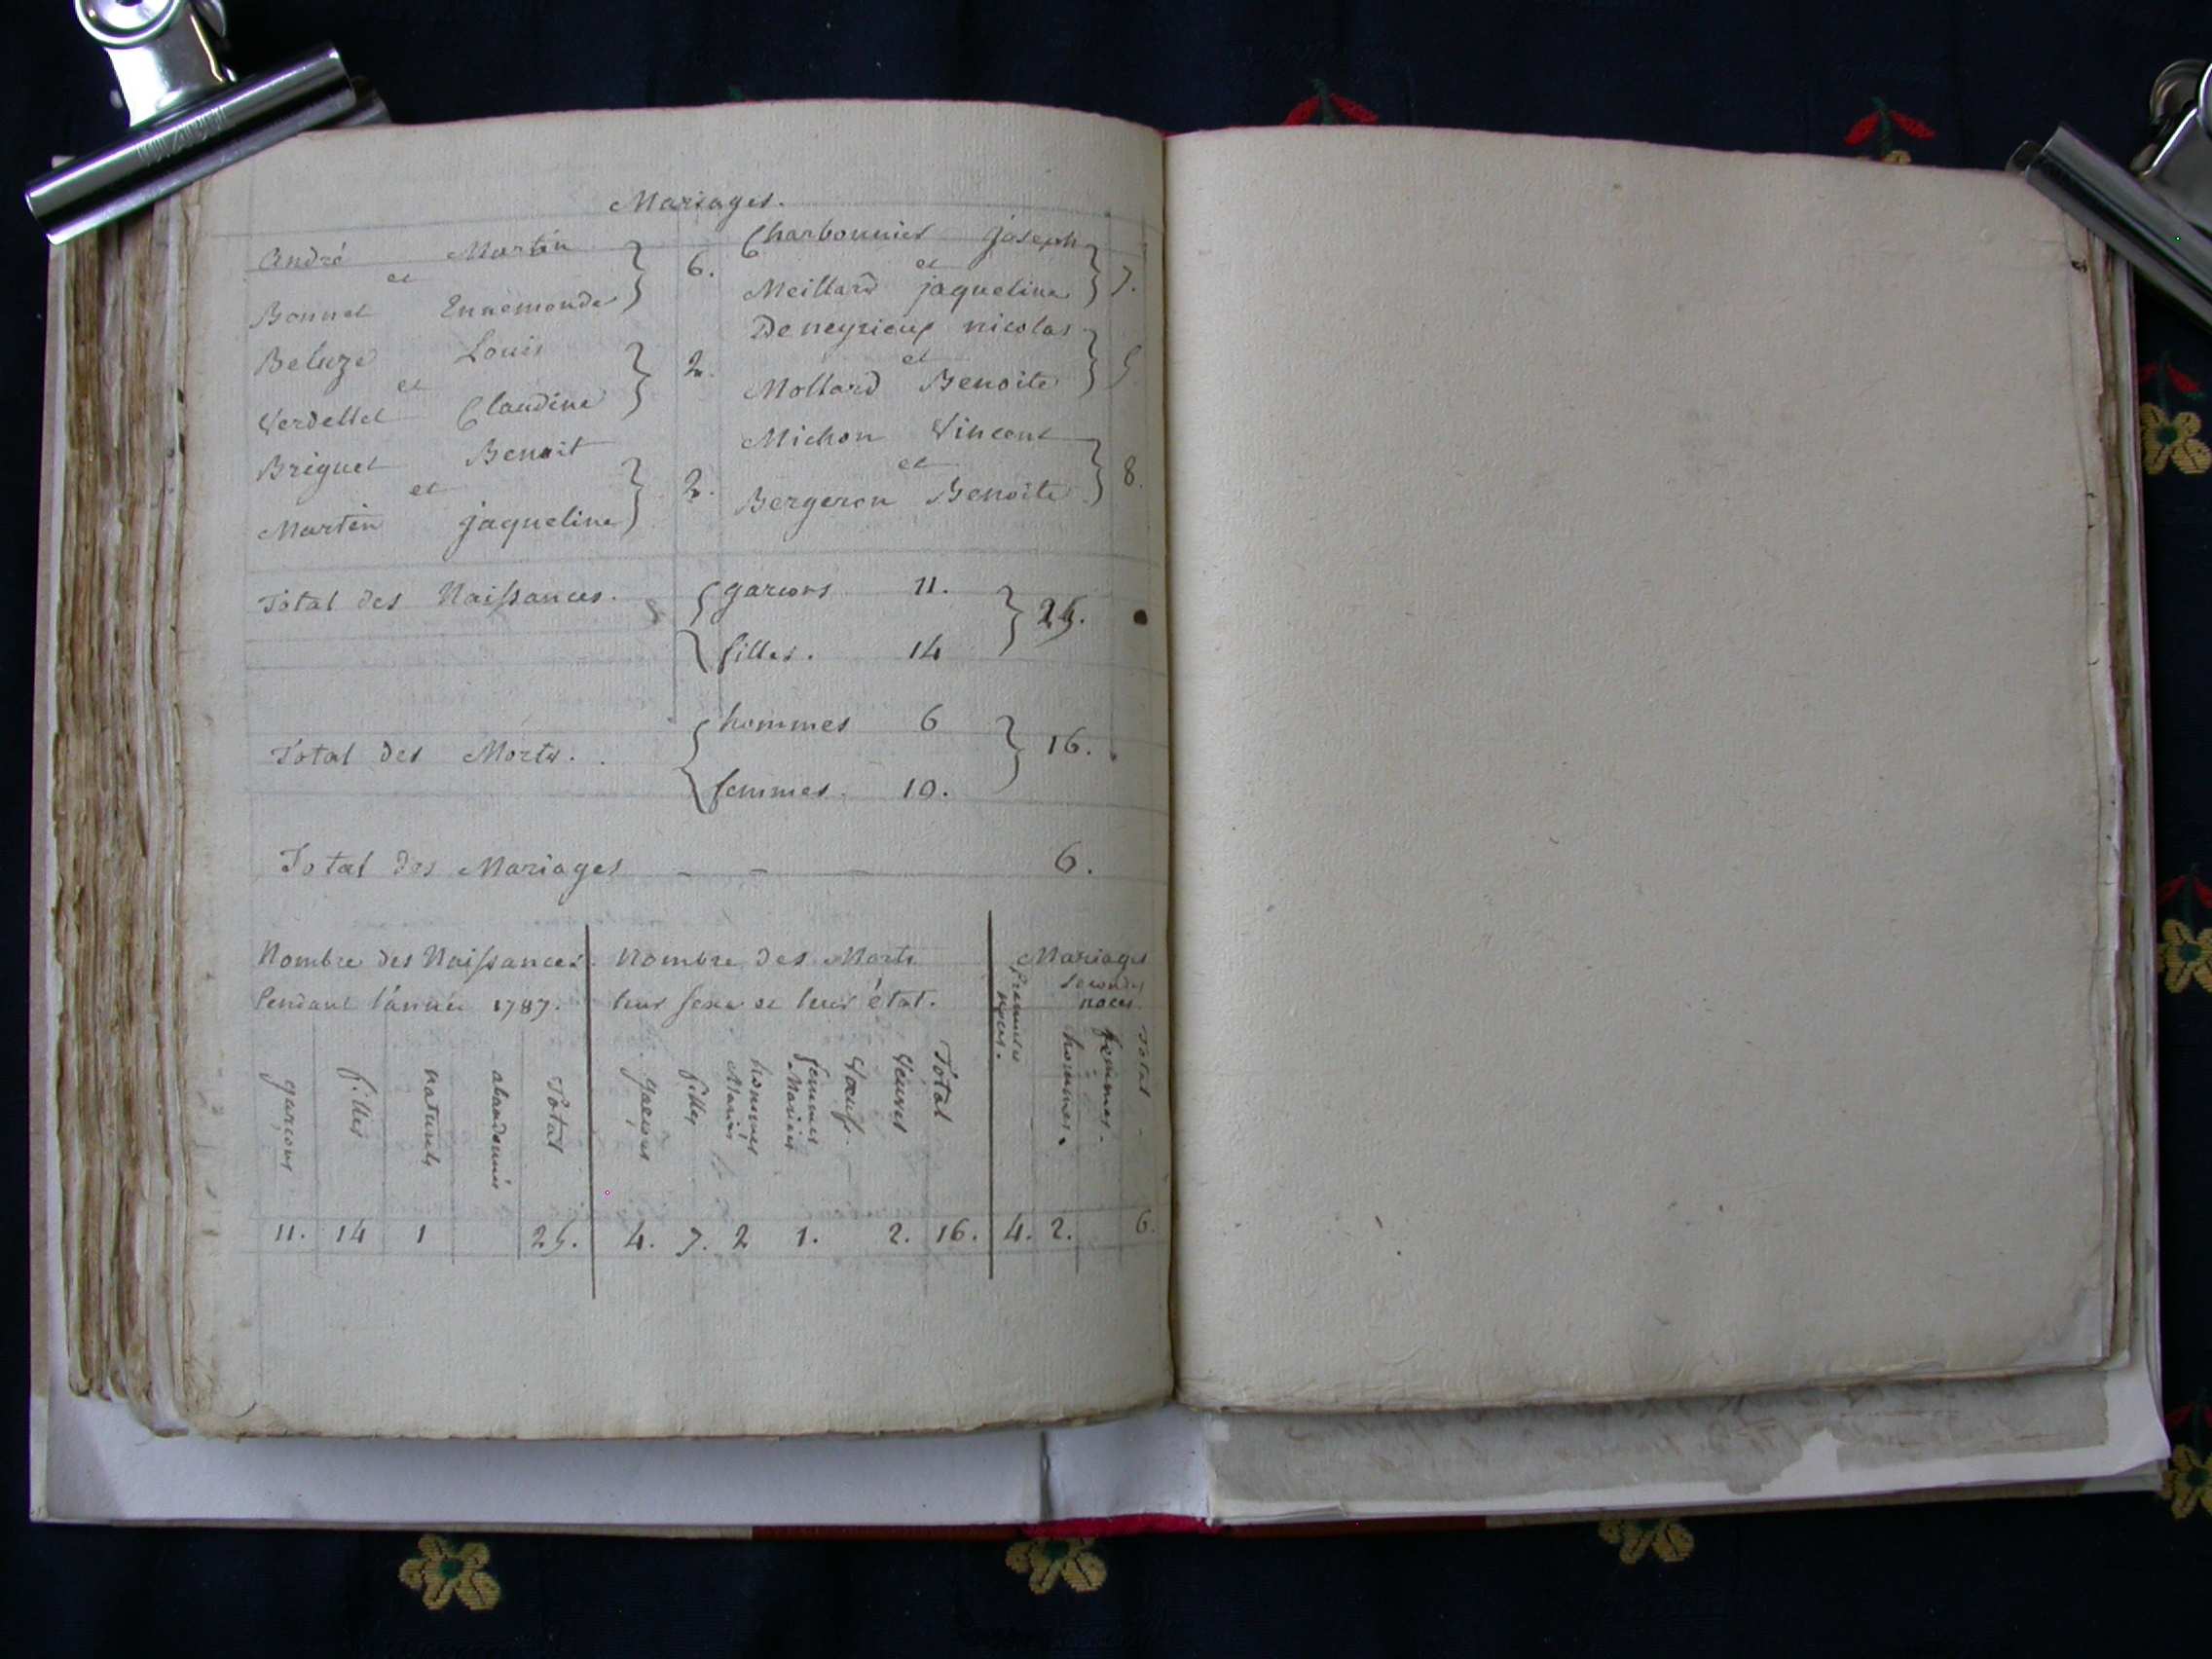 Mariages.
André Martin
et
Bonnet Ennemonde } 6.
Beluze Louis
et
Verdellet Claudine } 2.
Briguet Benoit
et
Martin jaqueline } 2.
Charbonnier joseph
et
Meillard jaqueline } 7.
Deneyrieux nicolas
et
Mollard Benoite } 5
Michon Vincent
et
Bergeron Benoite } 8.
Total des Naissances. { garcons 11. } 25.
filles. 14
Total des Morts. . { hommes 6 } 16.
femmes. 10.
Total des Mariages - - - 6.
Nombre des Naissances.
Pendant l'année 1787.
garçons
filles
naturels
abandonnés
Total
11. 14 1 25.
Nombre des Morts
leur sexe et leur état.
garçons
filles
hommes Mariés
femmes Mariées
Voeufs.
Veuves
Total
4. 7. 2 1. 2. 16.
Mariages
premieres noces.
secondes
noces.
hommes.
femmes.
Total
4. 2. 6.